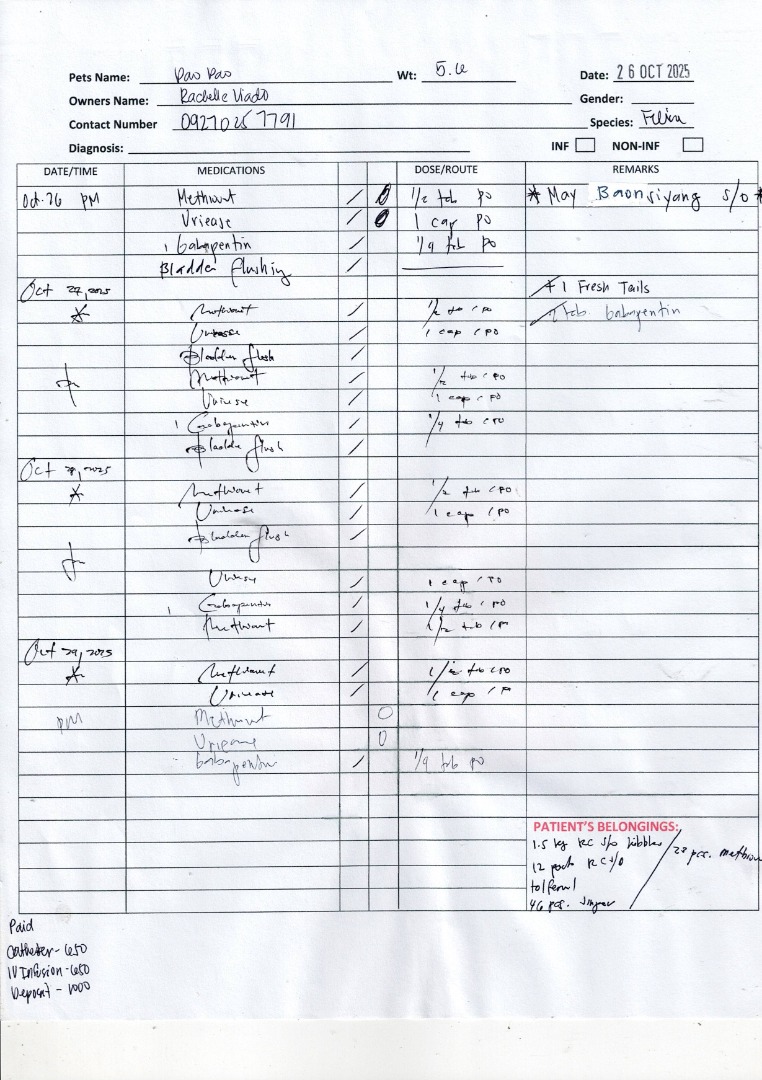 Pets Name: Pao Pao Wt: 5.6 Date: 26 OCT 2025
Owners Name: Rachelle Viado Gender:
Contact Number 0927 025 7791 Species: Feline
Diagnosis: INF NON-INF
DATE/TIME MEDICATIONS DOSE/ROUTE REMARKS
Oct. 26 PM Methiwut / 0 1/2 tab PO * May Baon siyang s/o *
Uriease / 0 1 cap PO
1 Gabapentin / 1/4 tab PO
Bladder flushing /
Oct 27, 2025 + 1 Fresh Tails
Methwut / 1/2 tab / PO 1 tab. Gabapentin
Uriease / 1 cap / PO
Bladder flush /
Methiwut / 1/2 tab / PO
Uriease / 1 cap / PO
1 Gabapentin / 1/4 tab / PO
Bladder flush /
Oct 28, 2025
Methiwut / 1/2 tab / PO
Uriease / 1 cap / PO
Bladder flush /
Uriease / 1 cap / PO
1 Gabapentin / 1/4 tab / PO
Methiwut / 1/2 tab / PO
Oct 29, 2025
Methiwut / 1/2 tab / PO
Uriease / 1 cap / PO
PM Methiwut 0
Uriease 0
Gabapentin / 1/4 tab PO
PATIENT'S BELONGINGS:
1.5 kg RC s/o kibbles / 23 pcs.
12 pcs RC s/o
46 pcs.
Paid
Catheter - 650
IV Infusion - 650
Deposit - 1000